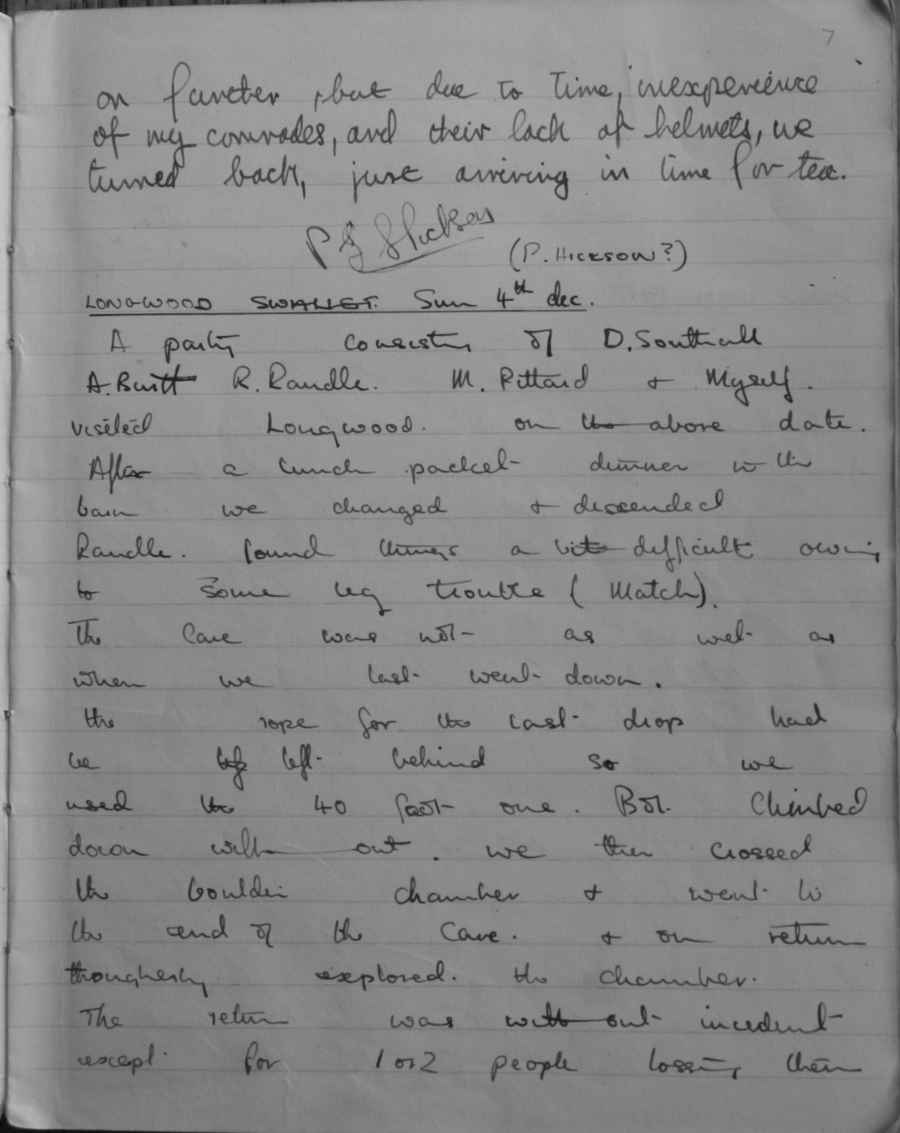 7
on furcter, but due to time, inexperience
of my comrades, and their lack of helmets, we
turned back, just arriving in time for tea.
P
(P. HICKSON?)
LONGWOOD SWALLET. Sun 4th dec.
A party consisting of D. Southall
A. Buitt R. Randle. M. Pittard & Myself.
visited Longwood. on the above date.
After a lunch packet dinner in the
barn we changed & descended
Randle. found things a bit difficult owing
to some leg trouble (Match).
The Cave was not as wet as
when we last went down.
the rope for the last drop had
be left behind so we
used the 40 foot one. Bot. Climbed
down with out. we then crossed
the boulder chamber & went to
the end of the Cave. & on return
thougherly explored. the chamber.
The return was with out incedent
except for 1 or 2 people lossing their